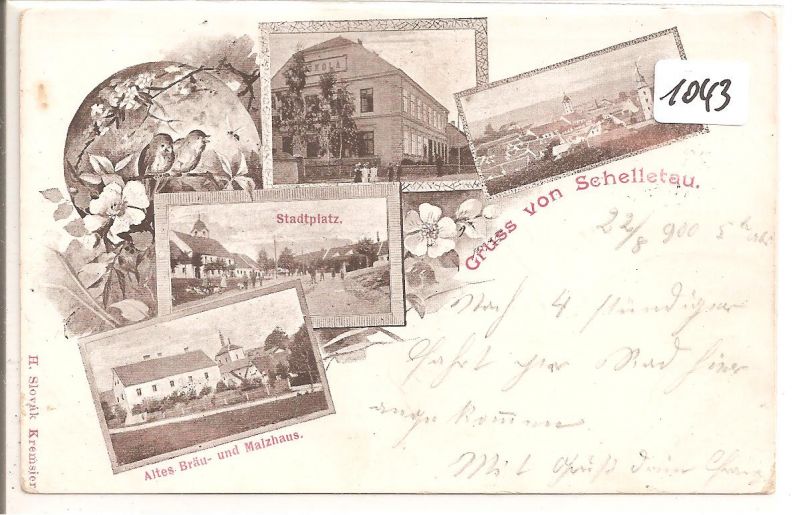 ŠKOLA
1043
Gruss von Schelletau.
Stadtplatz.
22/8 900 5 h
Nach 4 stündiger
Fahrt per Rad hier
angekommen
Mit Gruß dein Franz
Altes Bräu- und Malzhaus.
H. Slovák Kremsier